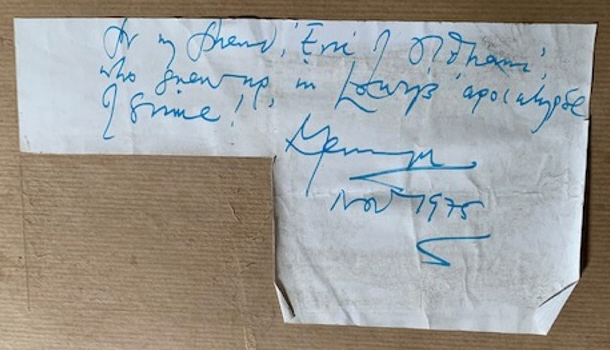 for my friend, 'Eric of Oldham',
who grew up in Lowry's 'apocalypse
of grime!'
Nov 1975